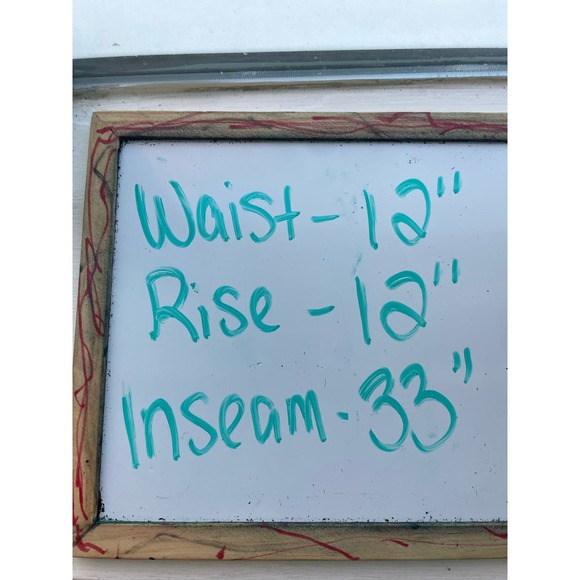 Waist - 12"
Rise - 12"
Inseam - 33"